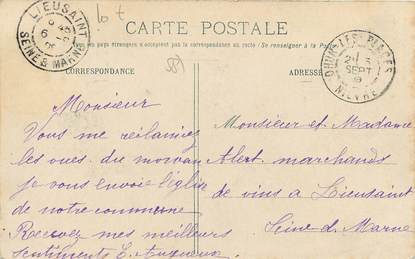 LIEUSAINT
6
SEINE & MARNE
DUN-LES-PLACES
SEPT
NIÈVRE
CARTE POSTALE
les pays étrangers n'acceptent pas la correspondance au recto (Se renseigner à la Poste)
CORRESPONDANCE
ADRESSE
Monsieur
Vous me réclamiez
les vues du morvan
je vous envoie l'église
de notre commune
Recevez mes meilleurs
sentiments
Monsieur et Madame
Alert marchands
de vins à Lieusaint
Seine & Marne